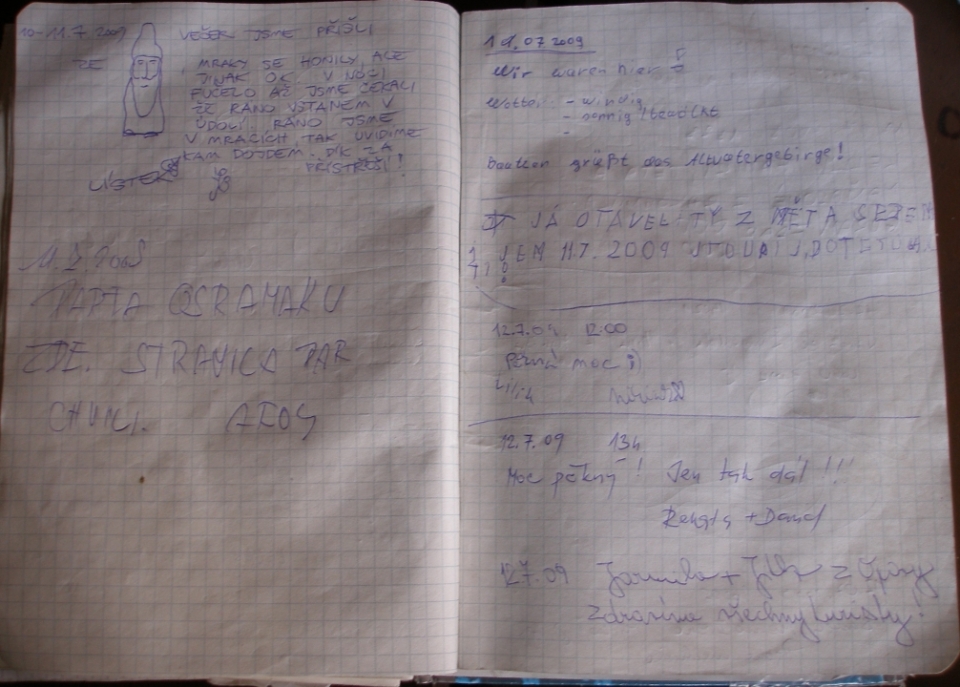 10-11.7 2009 VEČER JSME PŘIŠLI
ZE
MRAKY SE HONILY, ALE
JINAK O.K. V NOCI
FUČELO AČ JSME ČEKALI
ŽE RÁNO VSTANEM V
ÚDOLÍ. RÁNO JSME
V MRACÍCH, TAK UVIDÍME
KAM DOJDEM. DÍK ZA
PŘÍSTŘEŠÍ!
PARTA OSRAMAKU
ZDE. STRAVILA PAR
CHVILI. AHOJ
11.07.2009
Wir waren hier
- windig
- sonnig
-
Bautzen grüßt das Altvatergebirge!
JÁ OTAVEL TY Z MĚTA
JSEM 11.7. 2009
12.7.09 12:00
Pěkný moc :)
12.7.09 13h
Moc pěkný! Jen tak dál!!!
Renata + David
12.7.09 Jarmila + Jitka z Opavy
zdravíme všechny turisty!